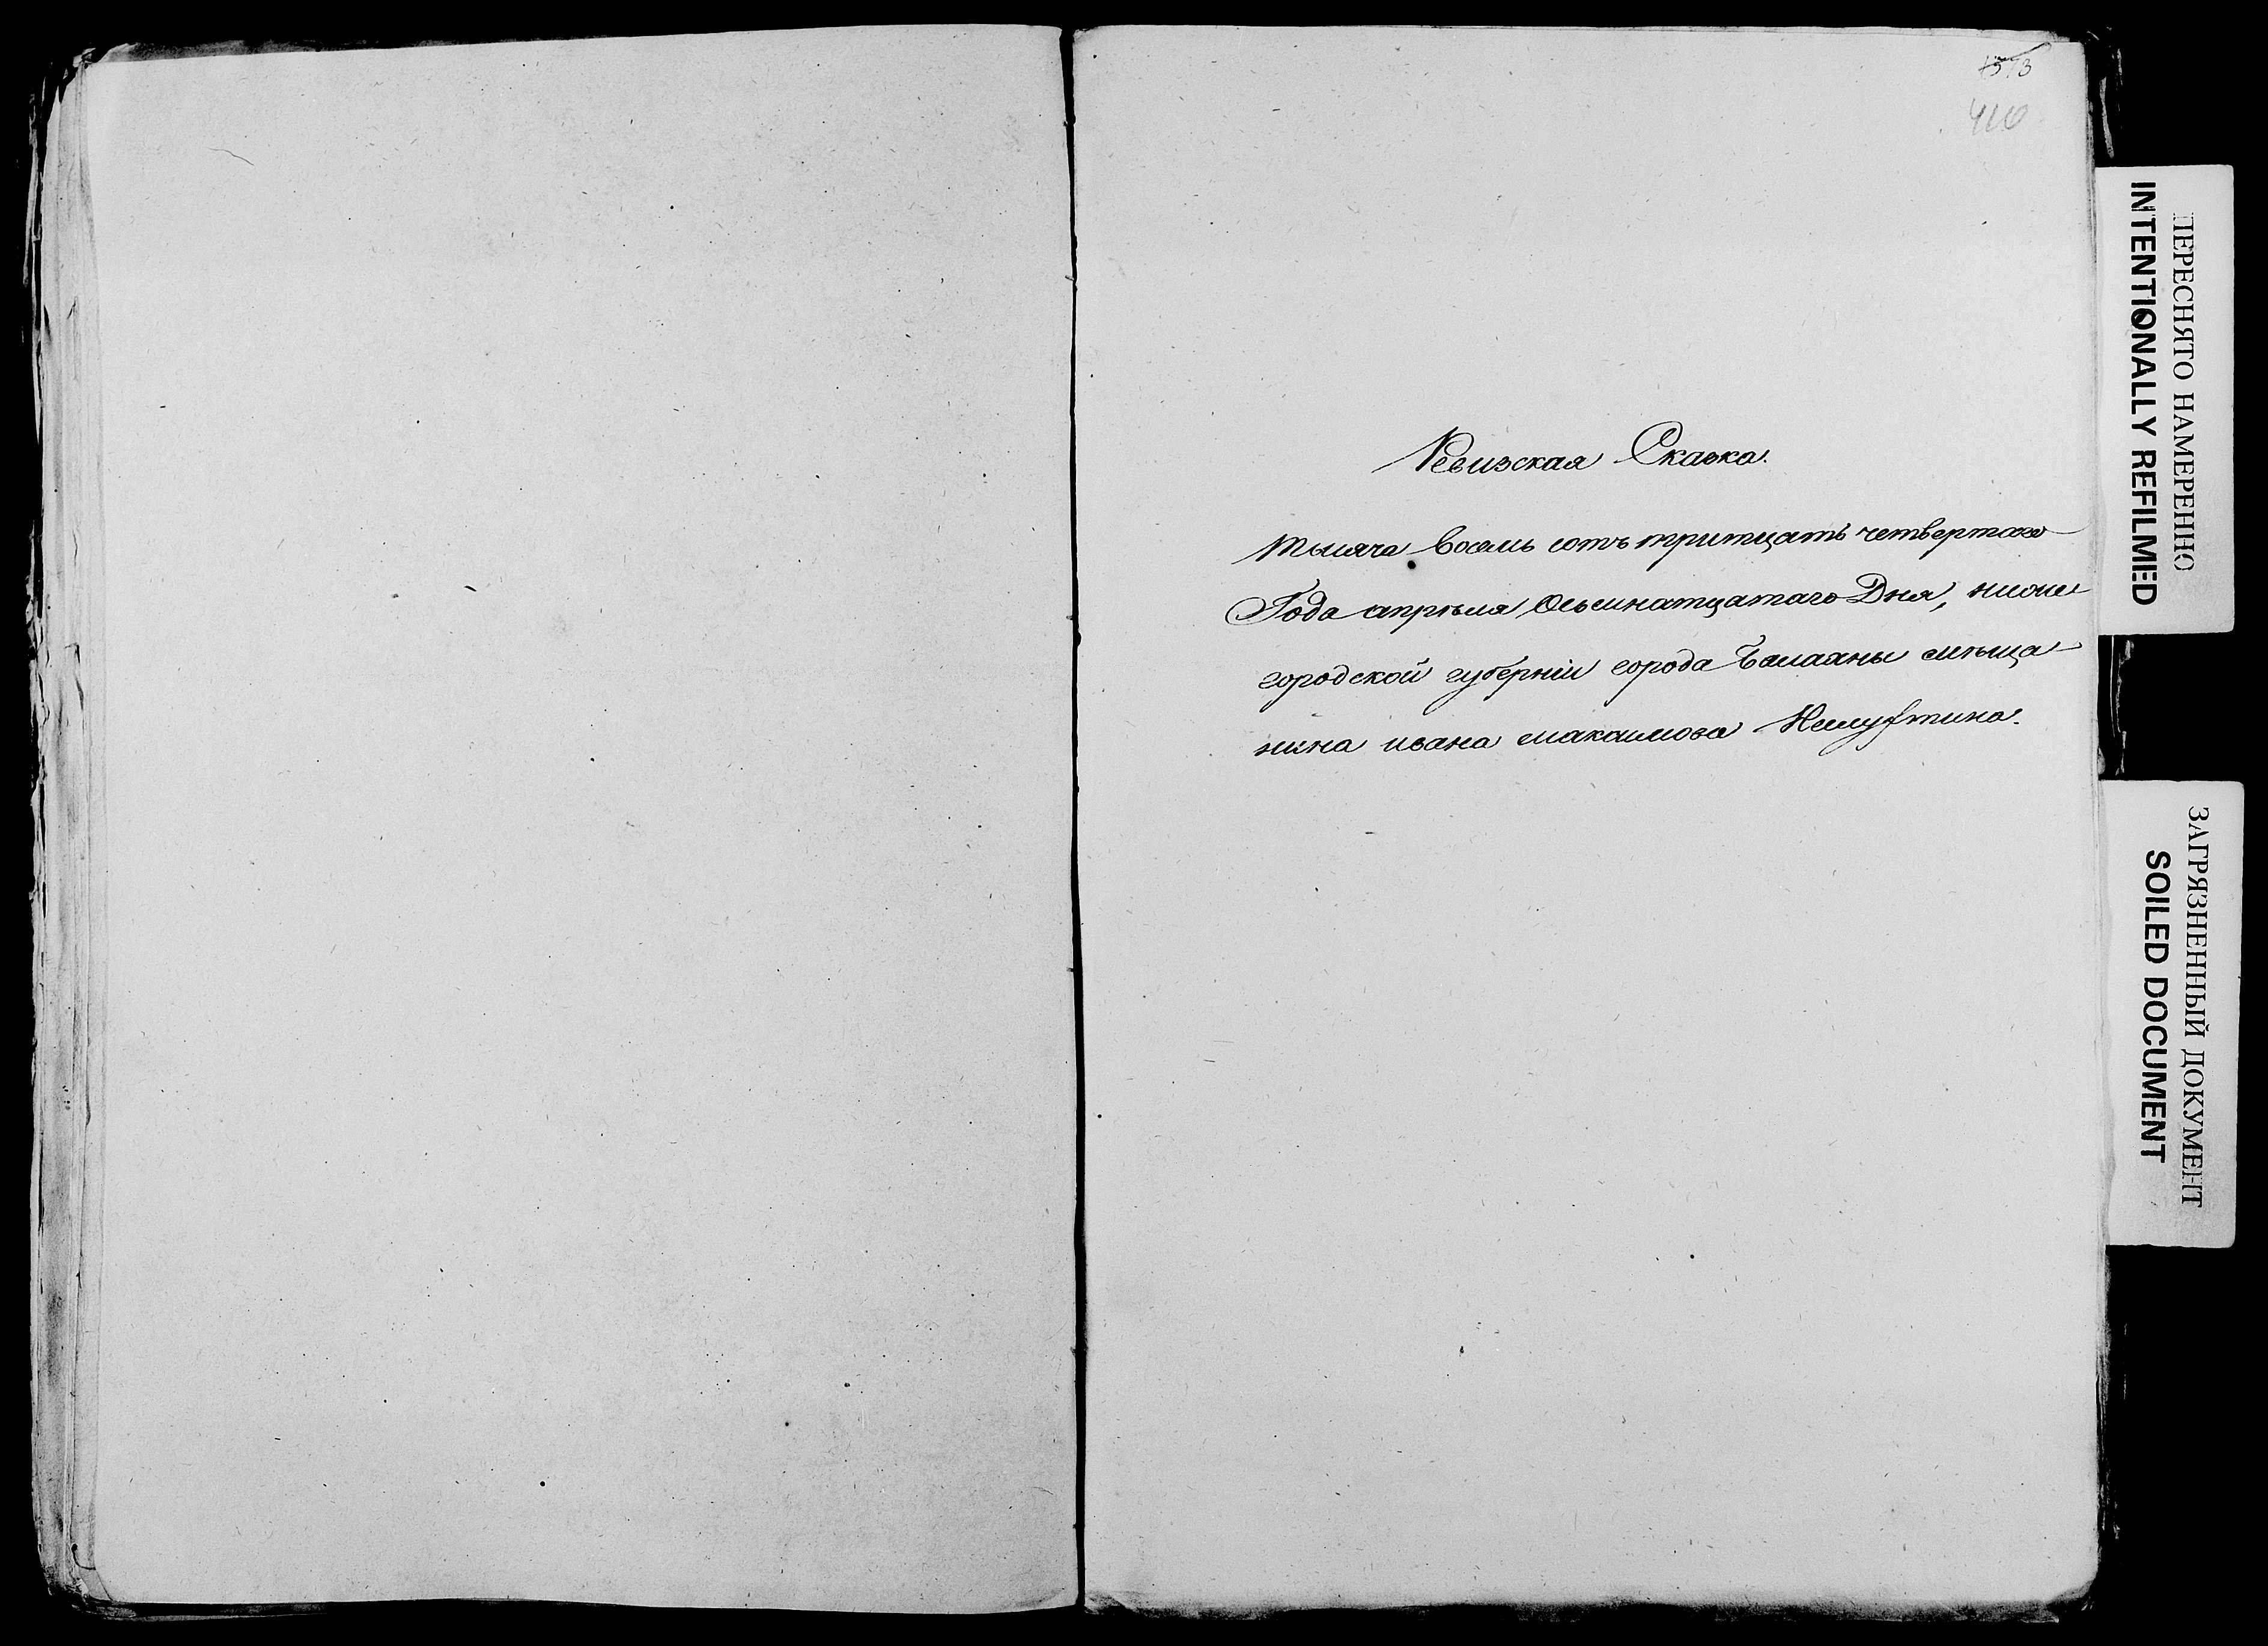 1573
410
Ревизская Сказка.
тысяча восемь сотъ тритцать четвертого
Года апреля Осьмнатцатаго Дня, ниже
городской губерніи города Балахны мѣща
нина ивана максимова
ПЕРЕСНЯТО НАМЕРЕННО
INTENTIONALLY REFILMED
ЗАГРЯЗНЕННЫЙ ДОКУМЕНТ
SOILED DOCUMENT